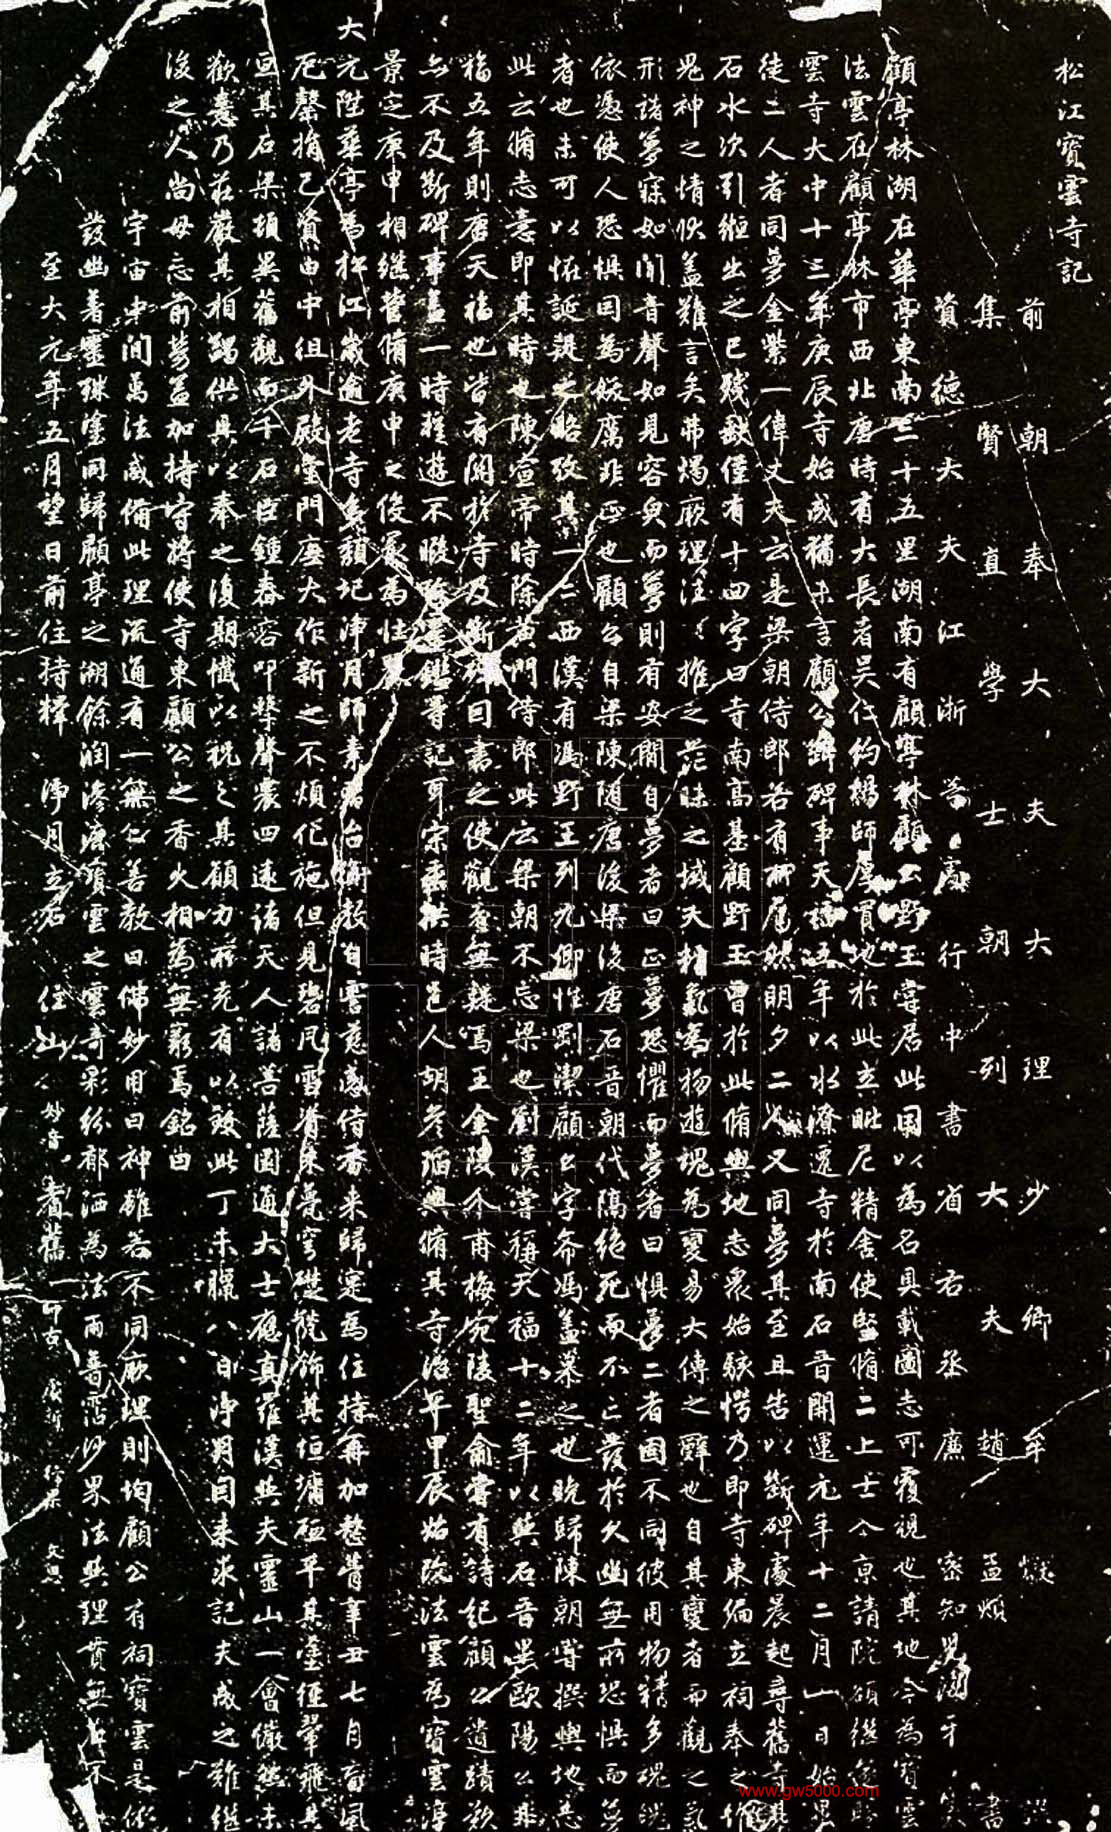 松江寶雲寺記
前朝奉大夫大理少卿牟巘撰
集賢直學士朝列大夫趙孟頫書
資德大夫江浙等處行中書省右丞廉密知兒海牙篆
顧亭林湖在華亭東南三十五里湖南有顧亭林顧公野王嘗居此因以為名具載圖志可覆視也其地今為寶雲
法雲在顧亭林市西北唐時有大長者吳仁約捐師屢買地於此立毗尼精舍使堅脩二上士入京請院額繼
雲寺大中十三年庚辰寺始成猶未言顧公斷碑事天福五年以水潦遷寺於南石晉開運元年十二月一日始
徒二人者同夢金紫一偉丈夫云是梁朝侍郎若有所屬然明夕二人又同夢其至且告以斷碑處晨起尋舊寺
石水次引維出之已殘缺僅有十四字曰寺南高基顧野王曾於此脩輿地志眾始駭愕乃即寺東偏立祠奉之
鬼神之情狀蓋難言矣弗燭厥理往往推之茫昧之域夫精氣為物遊魂為變易大傳之辭也自其變者而觀之
形諸夢寐如聞音聲如見容臾而夢則有安閒自夢者曰正夢恐懼而夢者曰懼夢二者固不同彼用物精多魂魄
依憑使人恐惧因為妖厲非正也顧公自梁陳隨唐後梁後唐石晉朝代隔絕死而不亡發於久幽無所恐惧而夢
者也未可以怪誕疑之昭攷其一二西漢有馮野王列九卿性剛潔顧公字希馮蓋慕之也晚歸陳朝嘗撰輿地志
此云脩志意即其時也陳宣帝時除黃門侍郎此云梁朝不忘梁也劉漢嘗稱天福十二年以與石晉異歐陽公非
福五年則唐天福也皆有關於寺及斷碑因書之使觀者無疑焉王金陵介甫梅宛陵聖俞嘗有詩紀顧公遺蹟歎
亦不及斷碑事蓋一時槎遊不暇除靈鑑等記耳宋乘時邑人胡參瑫興脩其寺治平甲辰始院法雲為寶雲淳
景定庚申相繼營脩庚申之役最為壯麗
大元陞華亭為松江歲逾老寺多頹圮淨月師素習台衡教自雲慈感侍香來歸寔為住持再加整葺辛丑七月裔風
卮罄捐己資由中徂外殿堂門廡大作新之不煩化施但見碧瓦雪脊朱甍穹礎髹飾其垣墉砥平其塗徑翬飛其
亘其石梁頓異舊觀而千石巨鍾舂容叩擊聲震四遠諸天人諸菩薩圓通大士應真羅漢與夫靈山一會儼然未
歡喜乃莊嚴其相蠲供具以奉之復期懺以祝之其願力所充有以致此丁未臘八日淨月囙來求記夫成之難繼
後之人尚毋忘前勞益加持守將使寺東顧公之香火相為無窮焉銘曰
宇宙中間萬法咸備此理流通有一無二善教曰佛妙用曰神雖若不同厥理則均顧公有祠寶雲是依
發幽著靈殊塗同歸顧亭之湖餘潤滲漉寶雲之雲奇彩紛郁洒為法雨普霑沙界法與理貫無
至大元年五月望日前住持釋淨月立石 住山